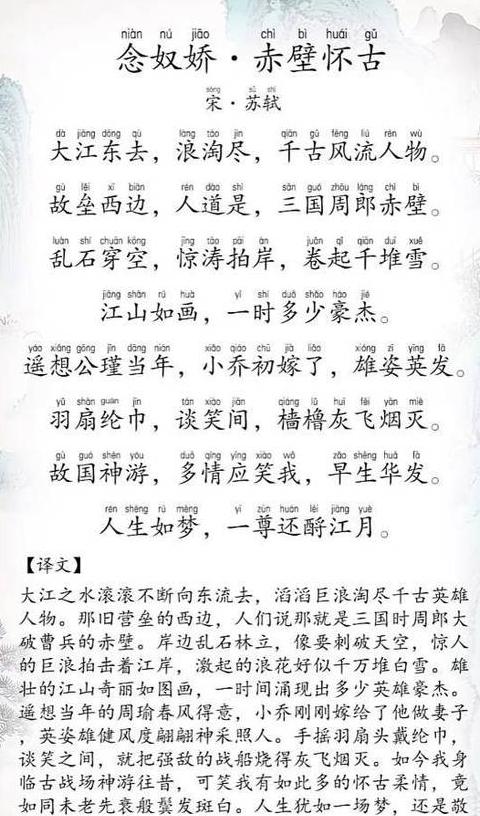 niàn nú jiāo chì bì huái gǔ
念奴娇·赤壁怀古
sòng sū shì
宋·苏轼
dà jiāng dōng qù làng táo jìn qiān gǔ fēng liú rén wù
大江东去，浪淘尽，千古风流人物。
gù lěi xī biān rén dào shì sān guó zhōu láng chì bì
故垒西边，人道是，三国周郎赤壁。
luàn shí chuān kōng jīng tāo pāi àn juǎn qǐ qiān duī xuě
乱石穿空，惊涛拍岸，卷起千堆雪。
jiāng shān rú huà yì shí duō shǎo háo jié
江山如画，一时多少豪杰。
yáo xiǎng gōng jǐn dāng nián xiǎo qiáo chū jià liǎo xióng zī yīng fā
遥想公瑾当年，小乔初嫁了，雄姿英发。
yǔ shàn guān jīn tán xiào jiān qiáng lǔ huī fēi yān miè
羽扇纶巾，谈笑间，樯橹灰飞烟灭。
gù guó shén yóu duō qíng yīng xiào wǒ zǎo shēng huá fà
故国神游，多情应笑我，早生华发。
rén shēng rú mèng yì zūn huán lèi jiāng yuè
人生如梦，一尊还酹江月。
【译文】
大江之水滚滚不断向东流去，滔滔巨浪淘尽千古英雄
人物。那旧营垒的西边，人们说那就是三国时周郎大
破曹兵的赤壁。岸边乱石林立，像要刺破天空，惊人
的巨浪拍击着江岸，激起的浪花好似千万堆白雪。雄
壮的江山奇丽如图画，一时间涌现出多少英雄豪杰。
遥想当年的周瑜春风得意，小乔刚刚嫁给了他做妻子
，英姿雄健风度翩翩神采照人。手摇羽扇头戴纶巾，
谈笑之间，就把强敌的战船烧得灰飞烟灭。如今我身
临古战场神游往昔，可笑我有如此多的怀古柔情，竟
如同未老先衰般鬓发斑白。人生犹如一场梦，还是敬